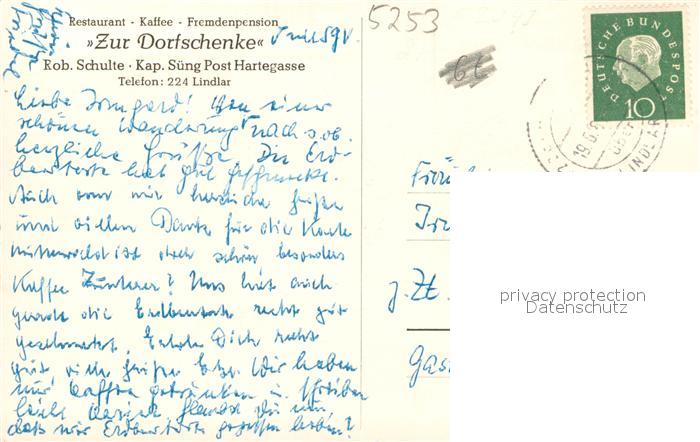 Restaurant - Kaffee - Fremdenpension
»Zur Dorfschenke«
Rob. Schulte · Kap. Süng Post Hartegasse
Telefon: 224 Lindlar
5253
Liebe Irmgard! Von einer
schönen Wanderung nach s. ob.
herzliche Grüße. Die Erd-
beertorte hat gut geschmeckt.
Auch von mir herzliche Grüße
und vielen Dank für die Karte
ist doch schön besonders
Kaffee ? Uns hat auch
gerade die Erdbeertorte recht gut
geschmeckt. Erhole Dich recht
gut viele Grüße Wir haben
nur Kaffee getrunken u.
glaubst Du nun,
daß wir Erdbeertorte gegessen haben?
DEUTSCHE BUNDESPOST
10
LINDLAR
Fräul
z. Zt.
Gas
privacy protection
Datenschutz